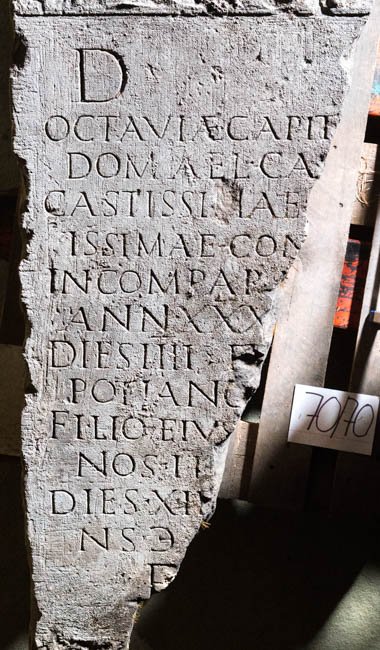 D
OCTAVIAE CAPI
DOM AEL CA
CASTISSIMAE
ISSIMAE CON
INCOMPAR
ANN XXX
DIES IIII
FILIO EIVS
NOS II
DIES XI
NS Ɔ
70/70